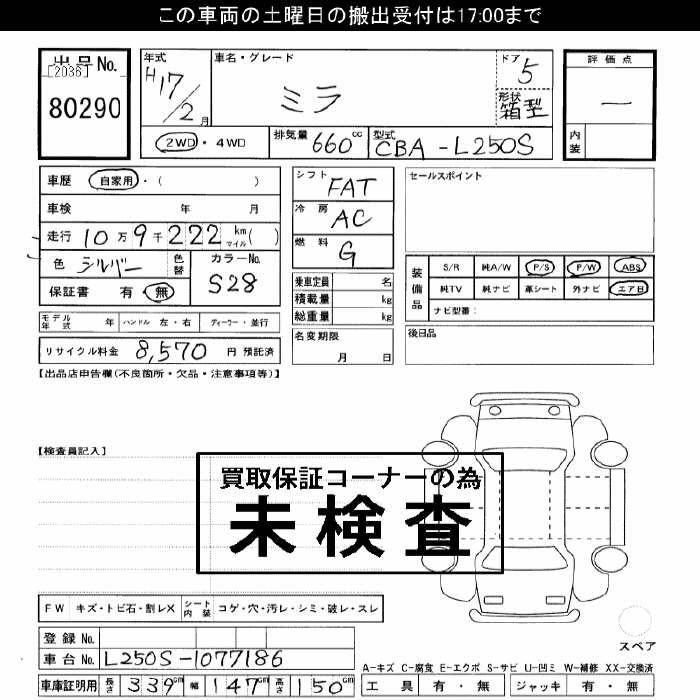 この車両の土曜日の搬出受付は17:00まで
出品No.
[2036]
80290
年式
H17/2月
車名・グレード
ミラ
ドア
5
形状
箱型
評価点
ー
内装
2WD・4WD
排気量 660 cc
型式 CBA-L250S
車歴 自家用・( )
車検 年 月
走行 10万9千222 km マイル( )
色 シルバー 色替
カラーNo. S28
保証書 有・無
モデル年式 年 ハンドル 左・右 ディーラー・並行
リサイクル料金 8,570 円 預託済
シフト FAT
冷房 AC
燃料 G
乗車定員 名
積載量 kg
総重量 kg
名変期限
月 日
セールスポイント
装備品
S/R 純A/W P/S P/W ABS
純TV 純ナビ 革シート 外ナビ エアB
ナビ型番:
後日品
【出品店申告欄(不良箇所・欠品・注意事項等)】
【検査員記入】
買取保証コーナーの為
未検査
FW キズ・トビ石・割レX シート内装 コゲ・穴・汚レ・シミ・破レ・スレ
スペア
登録No.
車台No. L250S-1077186
車庫証明用 長さ 339 cm 幅 147 cm 高さ 150 cm
A-キズ C-腐食 E-エクボ S-サビ U-凹ミ W-補修 XX-交換済
工具 有・無 ジャッキ 有・無